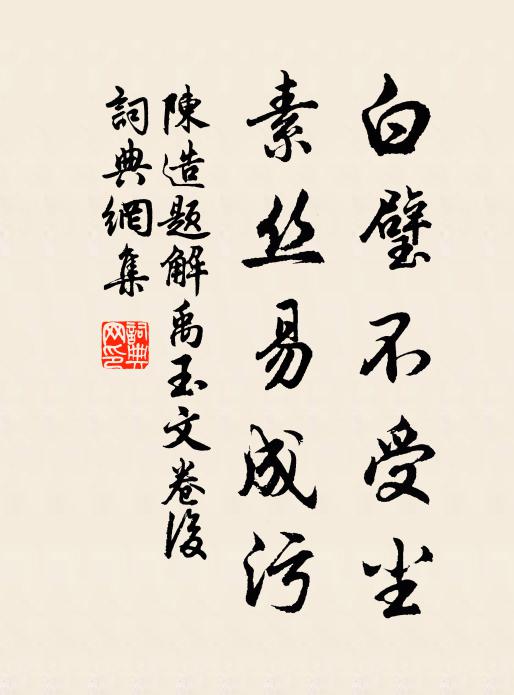 白璧不受尘
素丝易成污
陳造題解禹玉文卷後
詞典網集
詞典网印